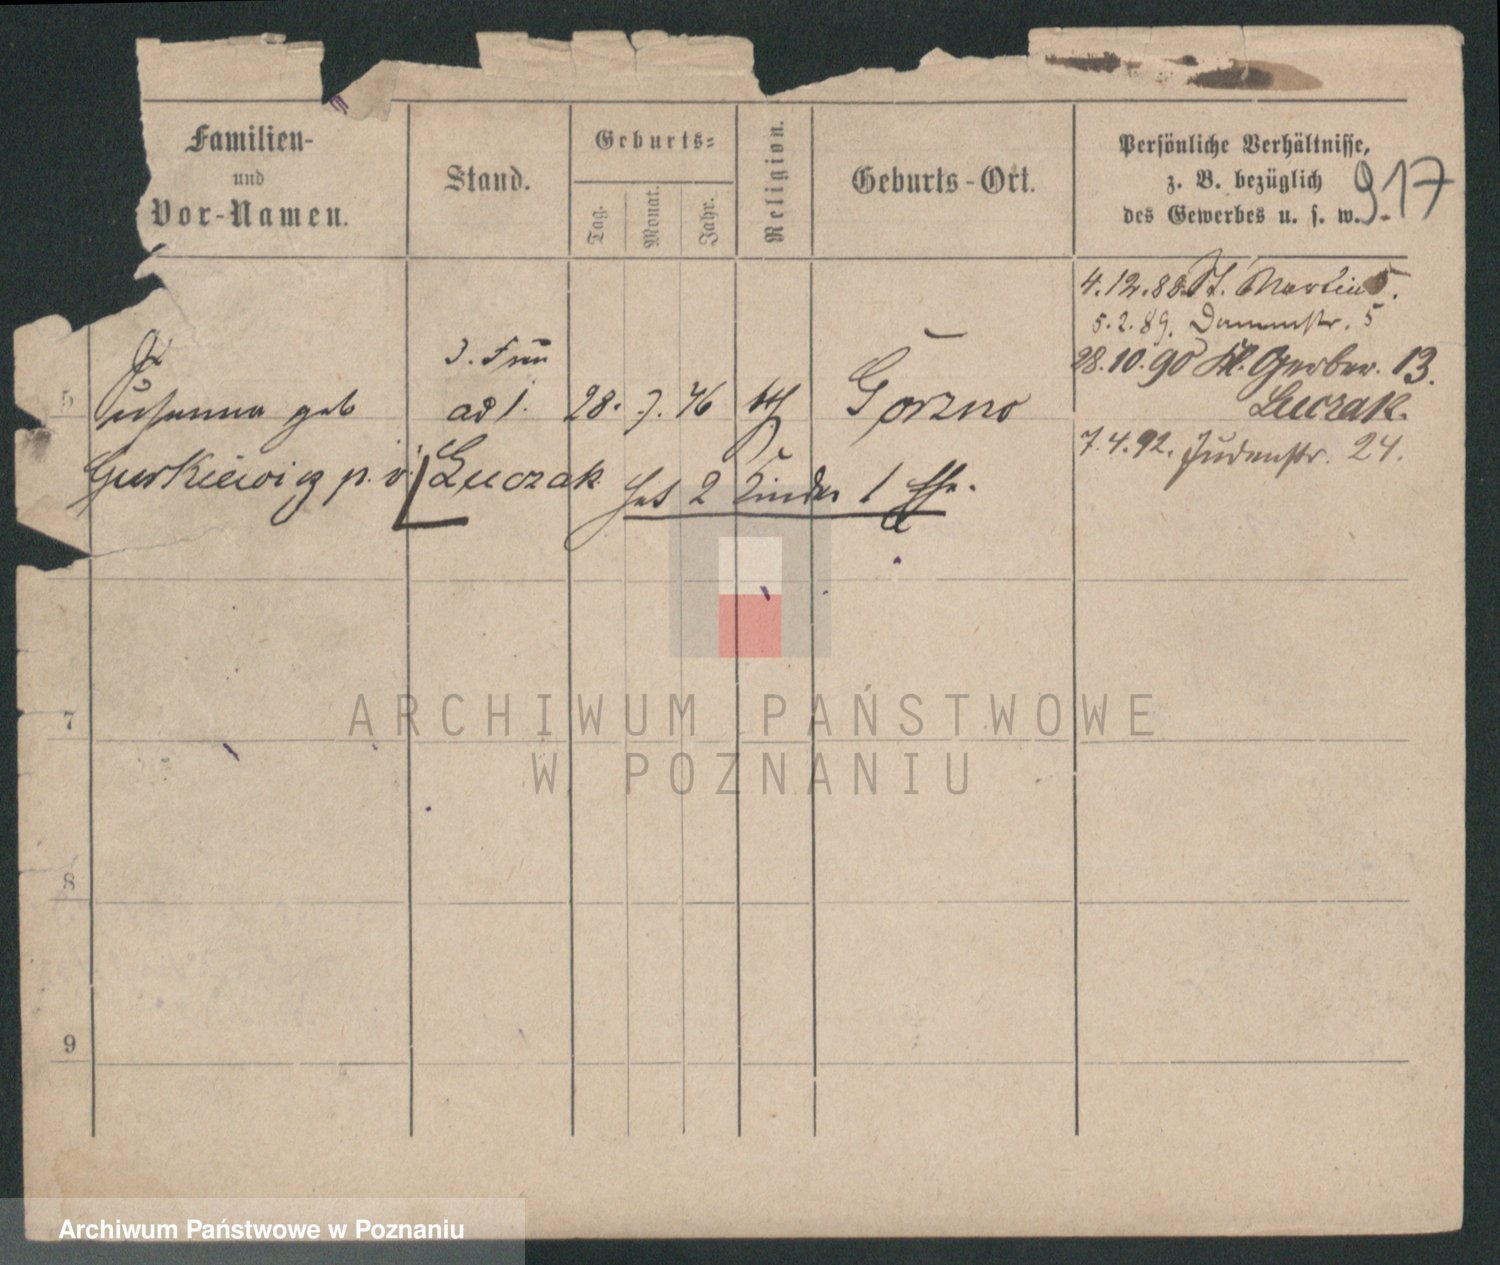 Familien-
und
Vor-Namen.
Stand.
Geburts-
Tag.
Monat.
Jahr.
Religion.
Geburts-Ort.
Persönliche Verhältnisse,
z. B. bezüglich
des Gewerbes u. s. w.
917
4.12.88. St. Martin 5.
5.2.89. Dammstr. 5
28.10.90 Kl. Gerber. 13.
Luczak.
7.4.92. Judenstr. 24.
3. Frau
5
Susanna geb
ad 1.
28. 7. 46
Gorzno
Gurkiewicz p. v.
Luczak
hat 2 Kinder 1 Ehe.
7
8
9
ARCHIWUM PAŃSTWOWE
W POZNANIU
Archiwum Państwowe w Poznaniu